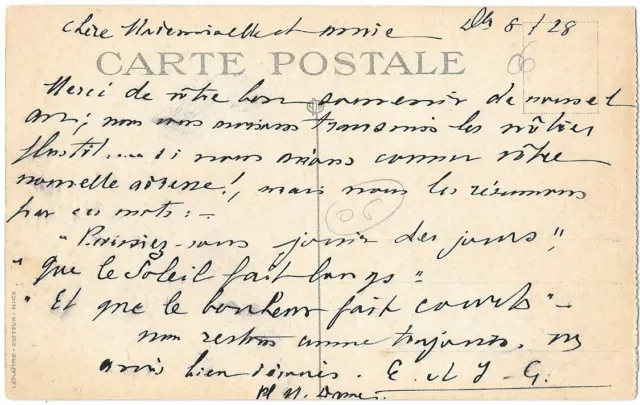 Chère Mademoiselle et amie 8/28
CARTE POSTALE
Merci de vôtre bon souvenir de nouvel
an; nous vous aurions transmis les nôtres
plustôt.... si nous avions connu vôtre
nouvelle adresse!, mais nous les résumons
par ces mots: -
"Puissiez-vous jouir des jours",
"Que le Soleil fait longs"
"Et que le bonheur fait courts" -
nous restons comme toujours, vos
amis bien dévoués. E. et J. G.
Pl. N. Dame
LEMAITRE - EDITEUR - NICE